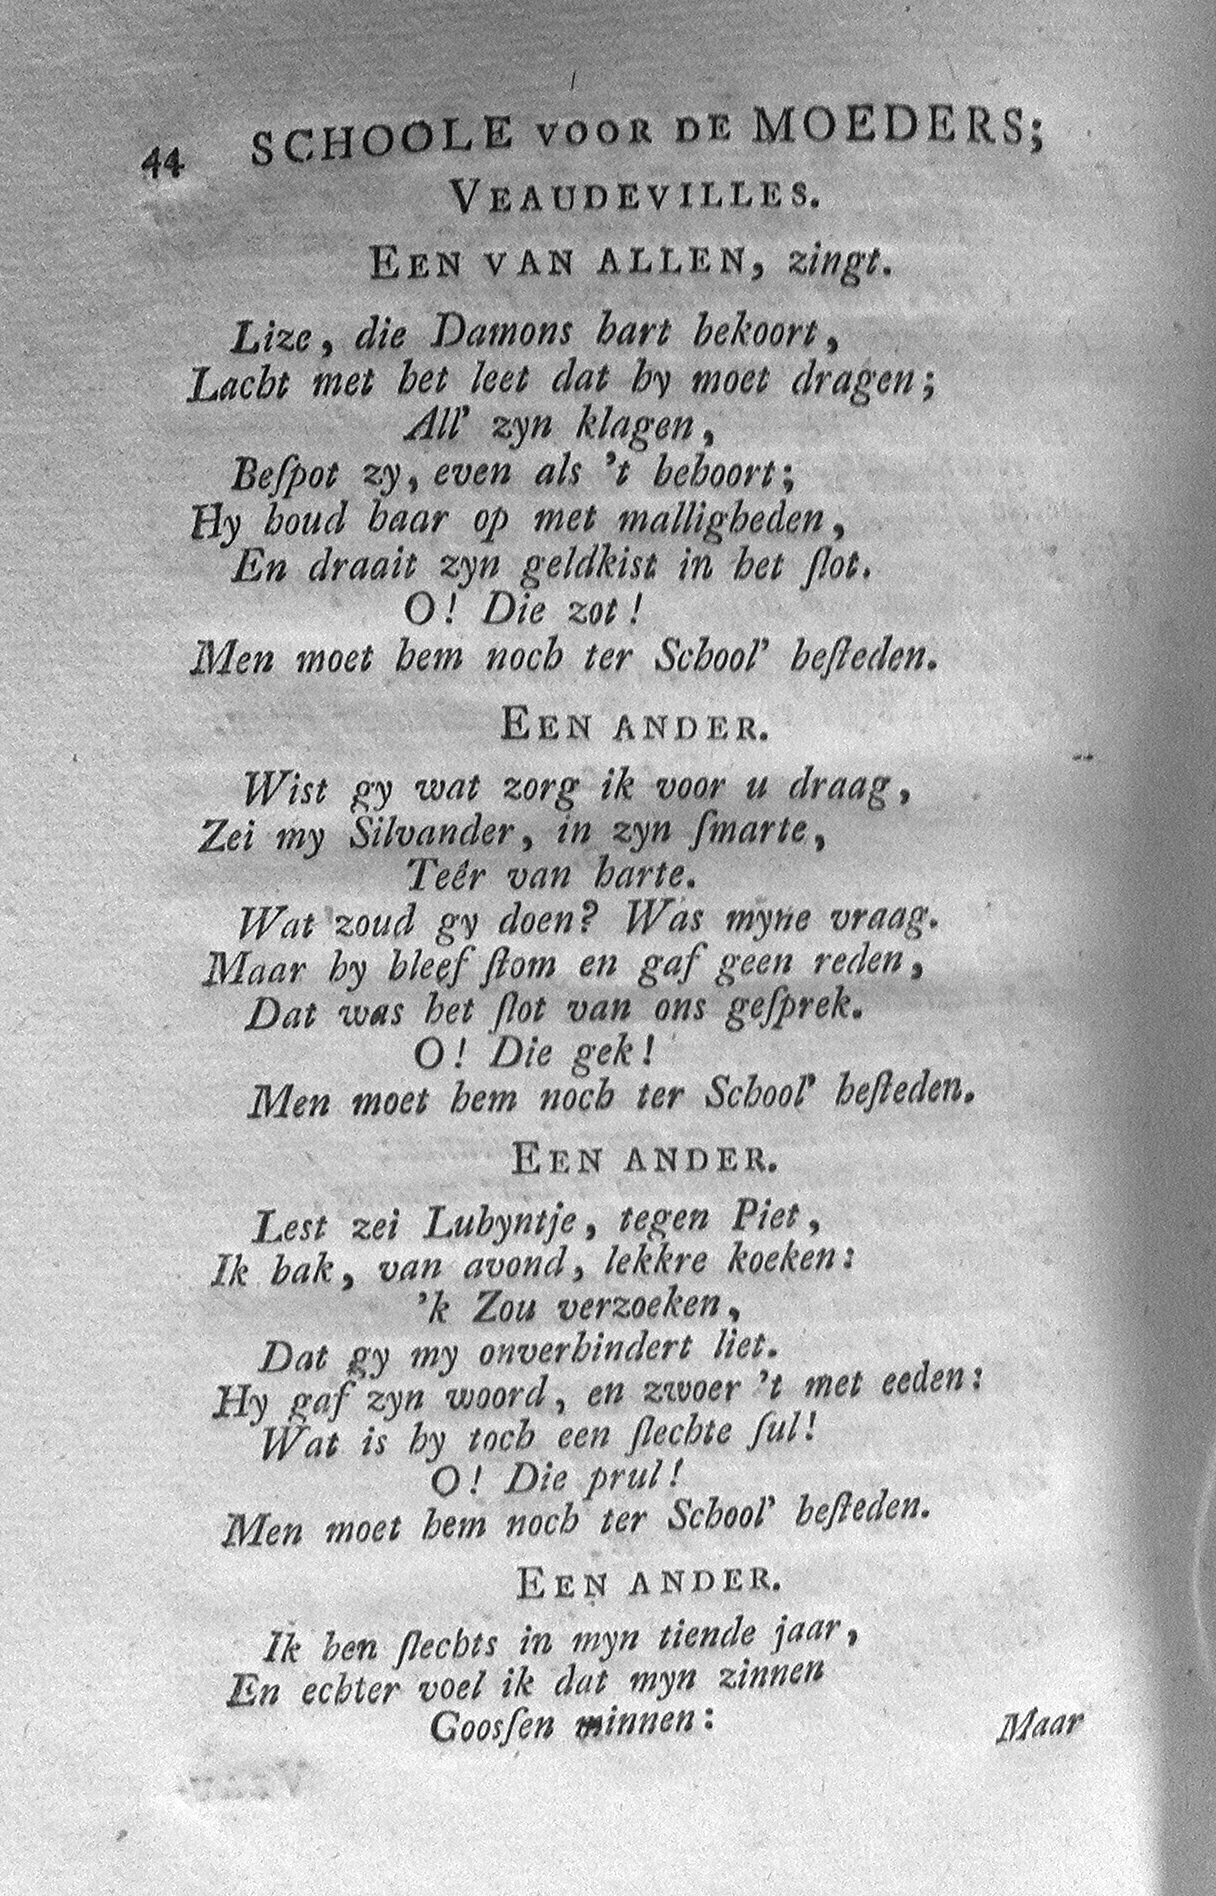 44 SCHOOLE VOOR DE MOEDERS;
VEAUDEVILLES.
EEN VAN ALLEN, zingt.
Lize, die Damons hart bekoort,
Lacht met het leet dat hy moet dragen;
All' zyn klagen,
Beſpot zy, even als 't behoort;
Hy houd haar op met malligheden,
En draait zyn geldkist in het ſlot.
O! Die zot!
Men moet hem noch ter School' beſteden.
EEN ANDER.
Wist gy wat zorg ik voor u draag,
Zei my Silvander, in zyn ſmarte,
Teêr van harte.
Wat zoud gy doen? Was myne vraag.
Maar hy bleef ſtom en gaf geen reden,
Dat was het ſlot van ons geſprek.
O! Die gek!
Men moet hem noch ter School' beſteden.
EEN ANDER.
Lest zei Lubyntje, tegen Piet,
Ik bak, van avond, lekkre koeken:
'k Zou verzoeken,
Dat gy my onverhindert liet.
Hy gaf zyn woord, en zwoer 't met eeden:
Wat is hy toch een ſlechte ſul!
O! Die prul!
Men moet hem noch ter School' beſteden.
EEN ANDER.
Ik ben ſlechts in myn tiende jaar,
En echter voel ik dat myn zinnen
Goosſen minnen:
Maar